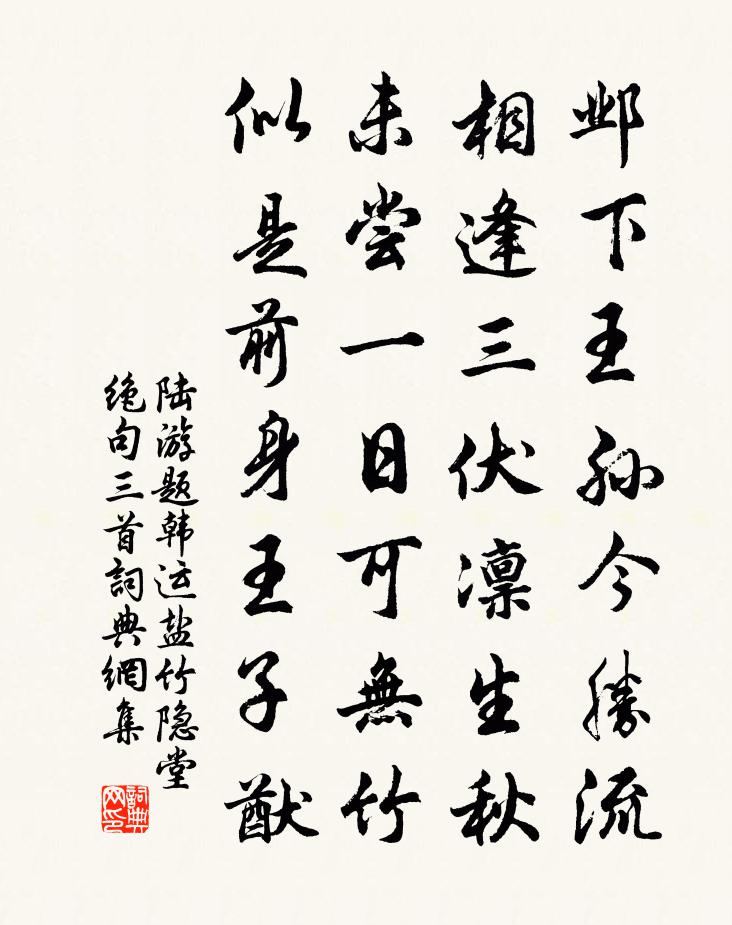 邺下王孙今勝流
相逢三伏凛生秋
未尝一日可無竹
似是前身王子猷
陆游题韩运盐竹隐堂
绝句三首詞典網集
詞典
网印